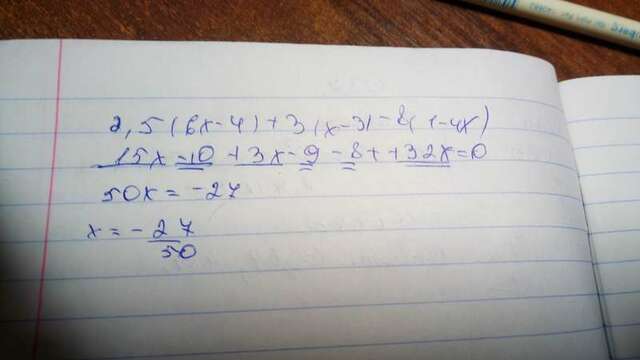 2,5(6x-4)+3(x-3)-8(1-4x)
15x-10+3x-9-8++32x=0
50x=-27
x=-27/50